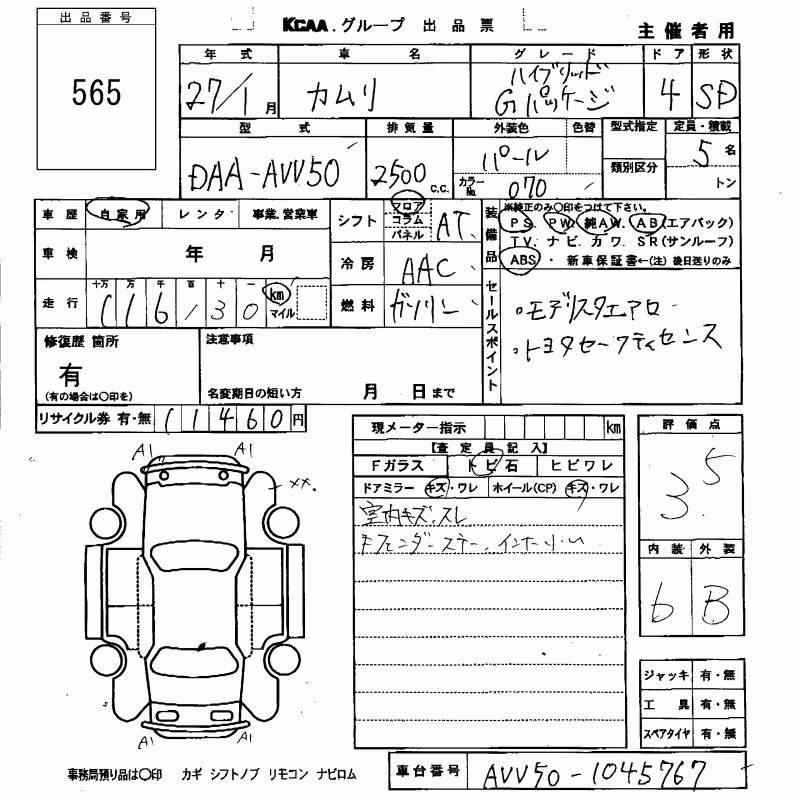 出品番号
565
KCAA.グループ 出品票
主催者用
年式 車名 グレード ドア 形状
27/1月 カムリ ハイブリッド Gパッケージ 4 SD
型式 排気量 外装色 色替 型式指定 定員・積載
DAA-AVV50 2500 c.c. パール 5名
カラーNo. 070 類別区分 トン
車歴 自家用 レンタ 事業.営業車
シフト フロア コラム パネル AT
装備品
※純正のみ〇印をつけて下さい。
PS. PW. 純AW. AB(エアバック)
TV. ナビ. カワ. SR(サンルーフ)
ABS・ 新車保証書←(注)後日送りのみ
車検 年 月
冷房 AAC
走行 十万 万 千 百 十 一
116130 km マイル
燃料 ガソリン
セールスポイント
。モデリスタエアロ
。トヨタセーフティセンス
修復歴 箇所
有
(有の場合は〇印を)
注意事項
名変期日の短い方 月 日まで
リサイクル券 有・無 11460円
現メーター指示 km
【査定員記入】
Fガラス トビ石 ヒビワレ
ドアミラー キズ・ワレ ホイール(CP) キズ・ワレ
室内キズ、スレ
Fフェンダーステー、インナー小い
評価点
3.5
内装 外装
6 B
A1 A1
××
A1 A1
ジャッキ 有・無
工具 有・無
スペアタイヤ 有・無
事務局預り品は〇印 カギ シフトノブ リモコン ナビロム
車台番号 AVV50-1045767